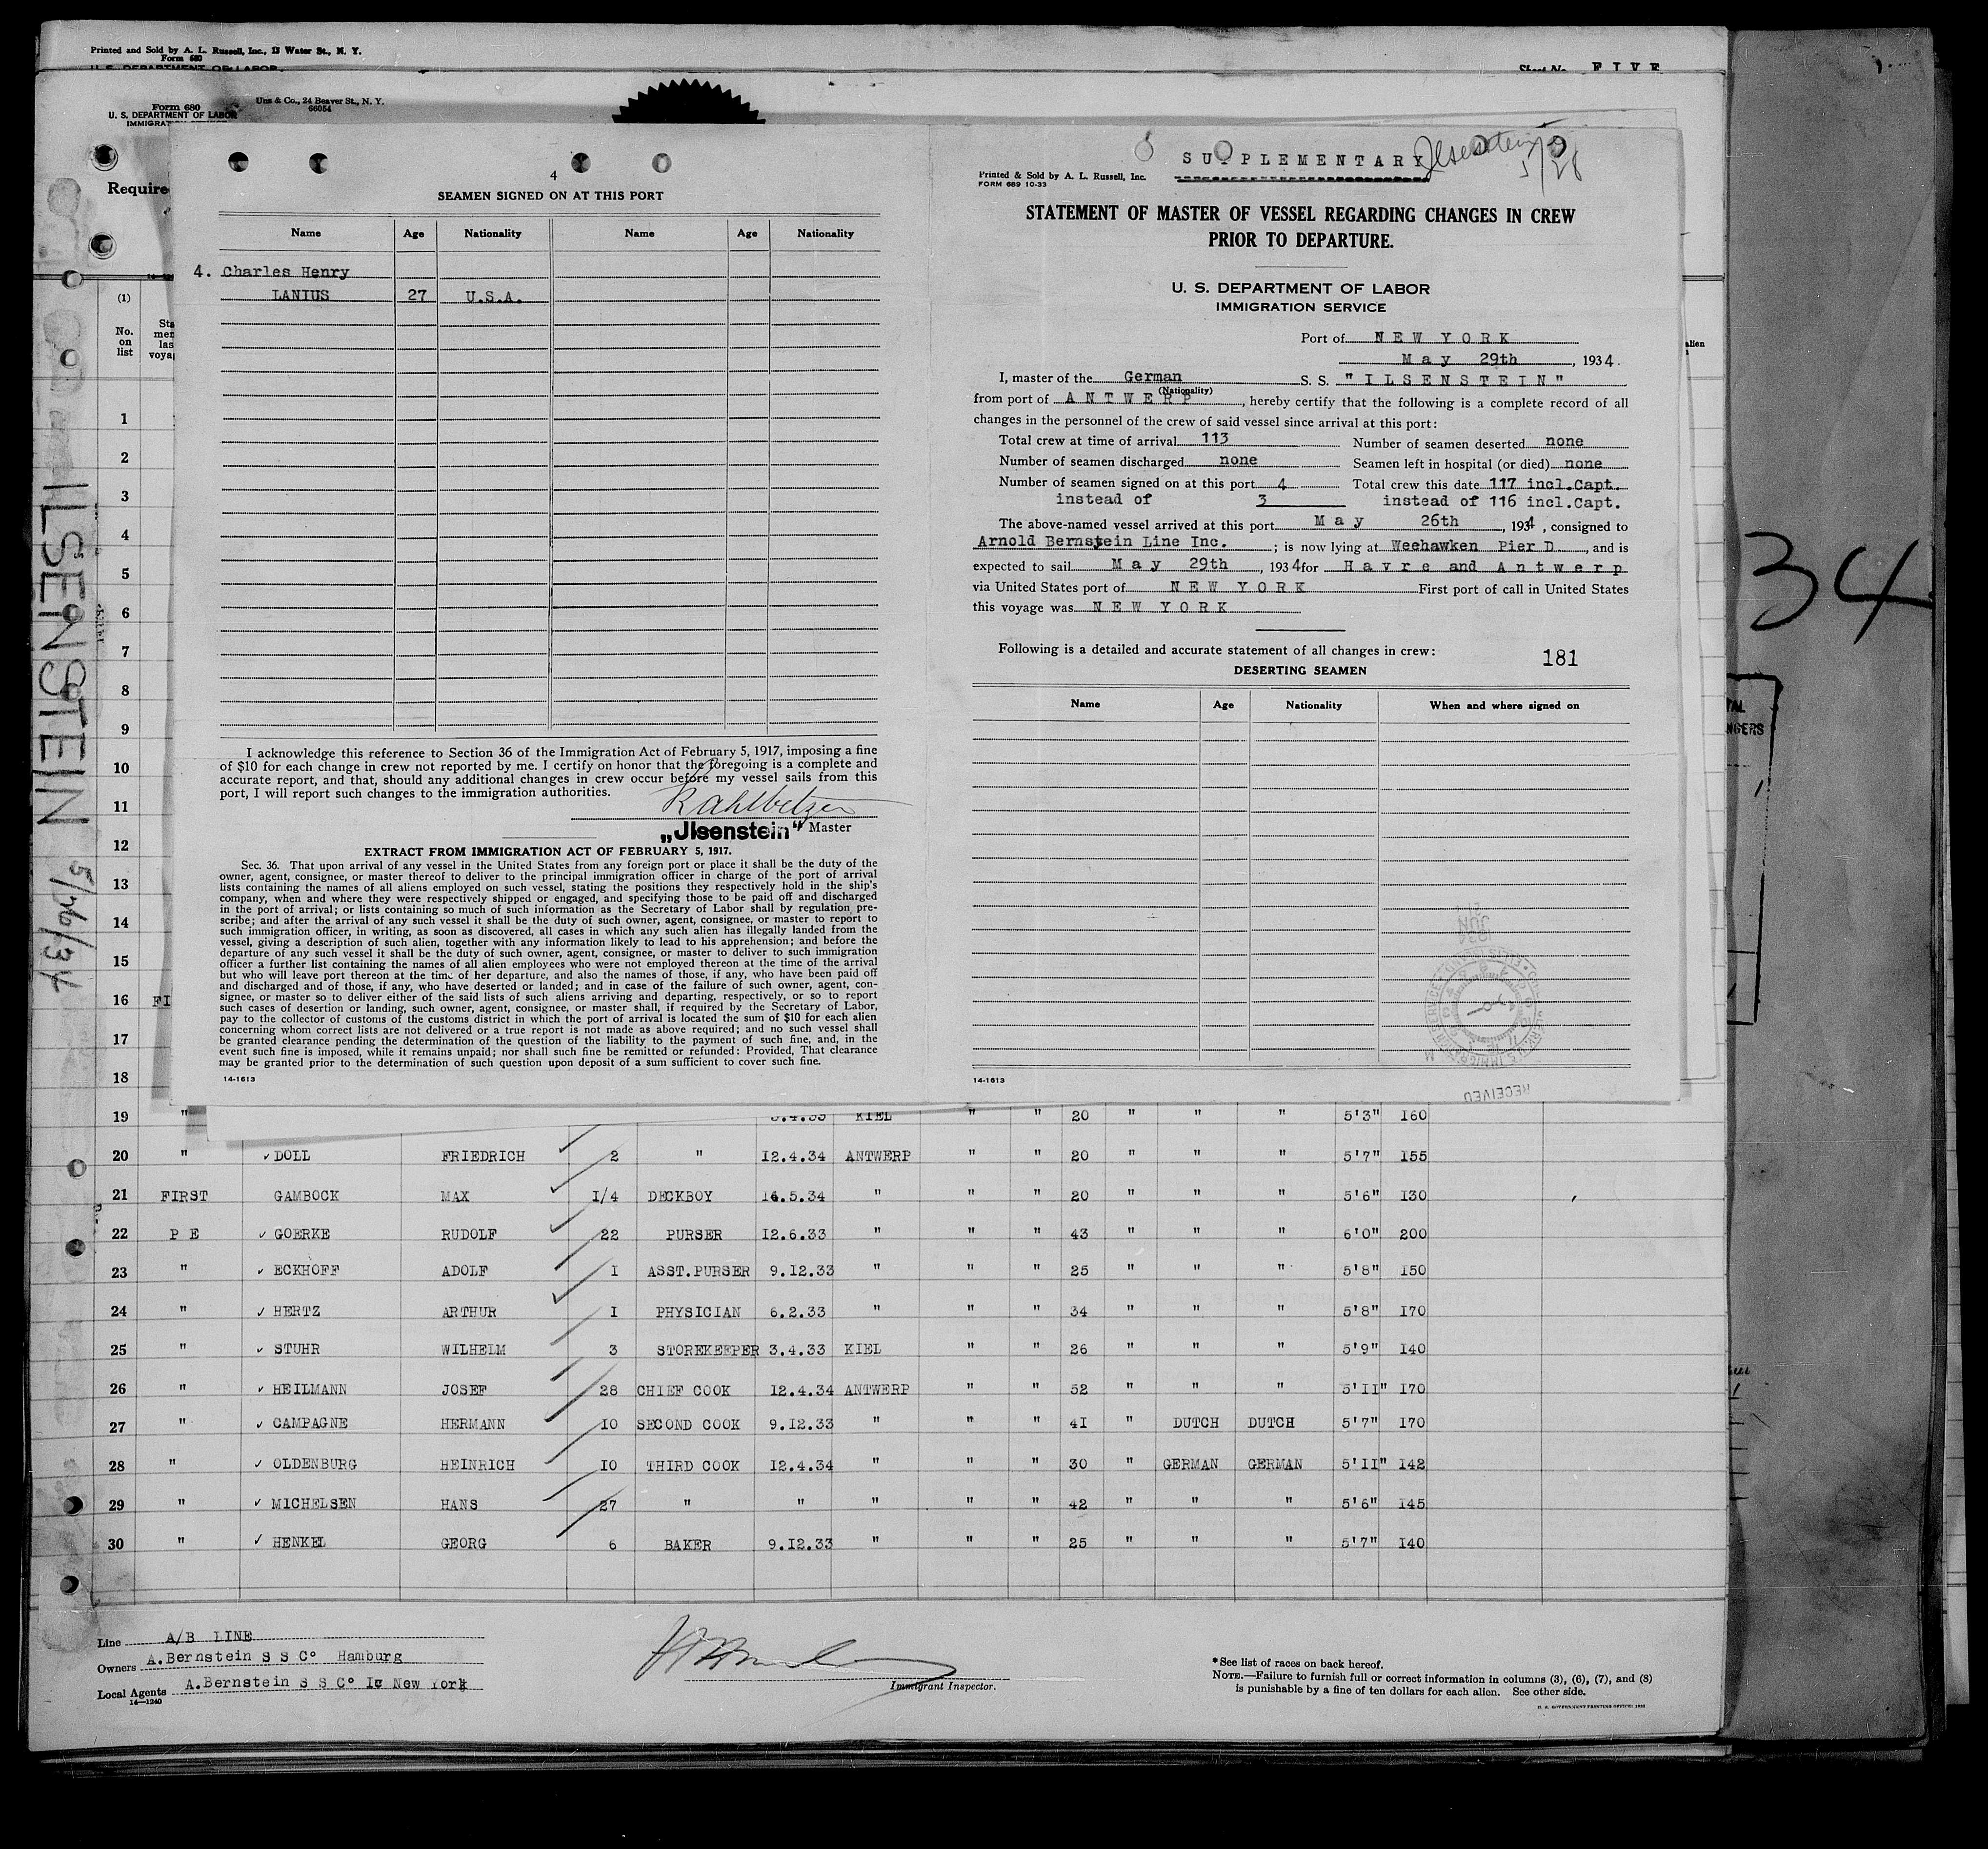 Printed and Sold by A. L. Russell, Inc., 13 Water St., N. Y.
Form 680
U. S. DEPARTMENT OF LABOR
Sheet No. FIVE
Form 680
Uns & Co., 24 Beaver St., N. Y.
66054
U. S. DEPARTMENT OF LABOR
Require
(1)
No.
on
list
ILSENSTEIN 5/26/34
4
SEAMEN SIGNED ON AT THIS PORT
Name Age Nationality Name Age Nationality
4. Charles Henry
LANIUS 27 U.S.A.
I acknowledge this reference to Section 36 of the Immigration Act of February 5, 1917, imposing a fine
of $10 for each change in crew not reported by me. I certify on honor that the foregoing is a complete and
accurate report, and that, should any additional changes in crew occur before my vessel sails from this
port, I will report such changes to the immigration authorities.
Kahlbetzer
„Jlsenstein" Master
EXTRACT FROM IMMIGRATION ACT OF FEBRUARY 5, 1917.
Sec. 36. That upon arrival of any vessel in the United States from any foreign port or place it shall be the duty of the
owner, agent, consignee, or master thereof to deliver to the principal immigration officer in charge of the port of arrival
lists containing the names of all aliens employed on such vessel, stating the positions they respectively hold in the ship's
company, when and where they were respectively shipped or engaged, and specifying those to be paid off and discharged
in the port of arrival; or lists containing so much of such information as the Secretary of Labor shall by regulation pre-
scribe; and after the arrival of any such vessel it shall be the duty of such owner, agent, consignee, or master to report to
such immigration officer, in writing, as soon as discovered, all cases in which any such alien has illegally landed from the
vessel, giving a description of such alien, together with any information likely to lead to his apprehension; and before the
departure of any such vessel it shall be the duty of such owner, agent, consignee, or master to deliver to such immigration
officer a further list containing the names of all alien employees who were not employed thereon at the time of the arrival
but who will leave port thereon at the time of her departure, and also the names of those, if any, who have been paid off
and discharged and of those, if any, who have deserted or landed; and in case of the failure of such owner, agent, con-
signee, or master so to deliver either of the said lists of such aliens arriving and departing, respectively, or so to report
such cases of desertion or landing, such owner, agent, consignee, or master shall, if required by the Secretary of Labor,
pay to the collector of customs of the customs district in which the port of arrival is located the sum of $10 for each alien
concerning whom correct lists are not delivered or a true report is not made as above required; and no such vessel shall
be granted clearance pending the determination of the question of the liability to the payment of such fine, and, in the
event such fine is imposed, while it remains unpaid; nor shall such fine be remitted or refunded: Provided, That clearance
may be granted prior to the determination of such question upon deposit of a sum sufficient to cover such fine.
14-1613
SUPPLEMENTARY
Jlsenstein 5/26
Printed & Sold by A. L. Russell, Inc.
FORM 689 10-33
STATEMENT OF MASTER OF VESSEL REGARDING CHANGES IN CREW
PRIOR TO DEPARTURE.
U. S. DEPARTMENT OF LABOR
IMMIGRATION SERVICE
Port of NEW YORK
May 29th, 1934.
I, master of the German S. S. "ILSENSTEIN"
(Nationality)
from port of ANTWERP, hereby certify that the following is a complete record of all
changes in the personnel of the crew of said vessel since arrival at this port:
Total crew at time of arrival 113 Number of seamen deserted none
Number of seamen discharged none Seamen left in hospital (or died) none
Number of seamen signed on at this port 4 Total crew this date 117 incl.Capt.
instead of 3 instead of 116 incl.Capt.
The above-named vessel arrived at this port May 26th, 1934, consigned to
Arnold Bernstein Line Inc.; is now lying at Weehawken Pier D, and is
expected to sail May 29th, 1934 for Havre and Antwerp
via United States port of NEW YORK First port of call in United States
this voyage was NEW YORK
Following is a detailed and accurate statement of all changes in crew:
181
DESERTING SEAMEN
Name Age Nationality When and where signed on
RECEIVED
14-1613
34
1
2
3
4
5
6
7
8
9
10
11
12
13
14
15
16 FI
17
18
19 " KIEL " " 20 " " " 5'3" 160
20 " DOLL FRIEDRICH 2 " 12.4.34 ANTWERP " " 20 " " " 5'7" 155
21 FIRST GAMBOCK MAX I/4 DECKBOY 14.5.34 " " " 20 " " " 5'6" 130
22 P E GOERKE RUDOLF 22 PURSER 12.6.33 " " " 43 " " " 6'0" 200
23 " ECKHOFF ADOLF I ASST.PURSER 9.12.33 " " " 25 " " " 5'8" 150
24 " HERTZ ARTHUR I PHYSICIAN 6.2.33 " " " 34 " " " 5'8" 170
25 " STUHR WILHELM 3 STOREKEEPER 3.4.33 KIEL " " 26 " " " 5'9" 140
26 " HEILMANN JOSEF 28 CHIEF COOK 12.4.34 ANTWERP " " 52 " " " 5'II" 170
27 " CAMPAGNE HERMANN 10 SECOND COOK 9.12.33 " " " 41 " DUTCH DUTCH 5'7" 170
28 " OLDENBURG HEINRICH 10 THIRD COOK 12.4.34 " " " 30 " GERMAN GERMAN 5'II" 142
29 " MICHELSEN HANS 27 " " " " " 42 " " " 5'6" 145
30 " HENKEL GEORG 6 BAKER 9.12.33 " " " 25 " " " 5'7" 140
Line A/B LINE
Owners A.Bernstein S S Co Hamburg
Local Agents A.Bernstein S S Co Ic New York
14-1240
Immigrant Inspector.
*See list of races on back hereof.
NOTE.—Failure to furnish full or correct information in columns (3), (6), (7), and (8)
is punishable by a fine of ten dollars for each alien. See other side.